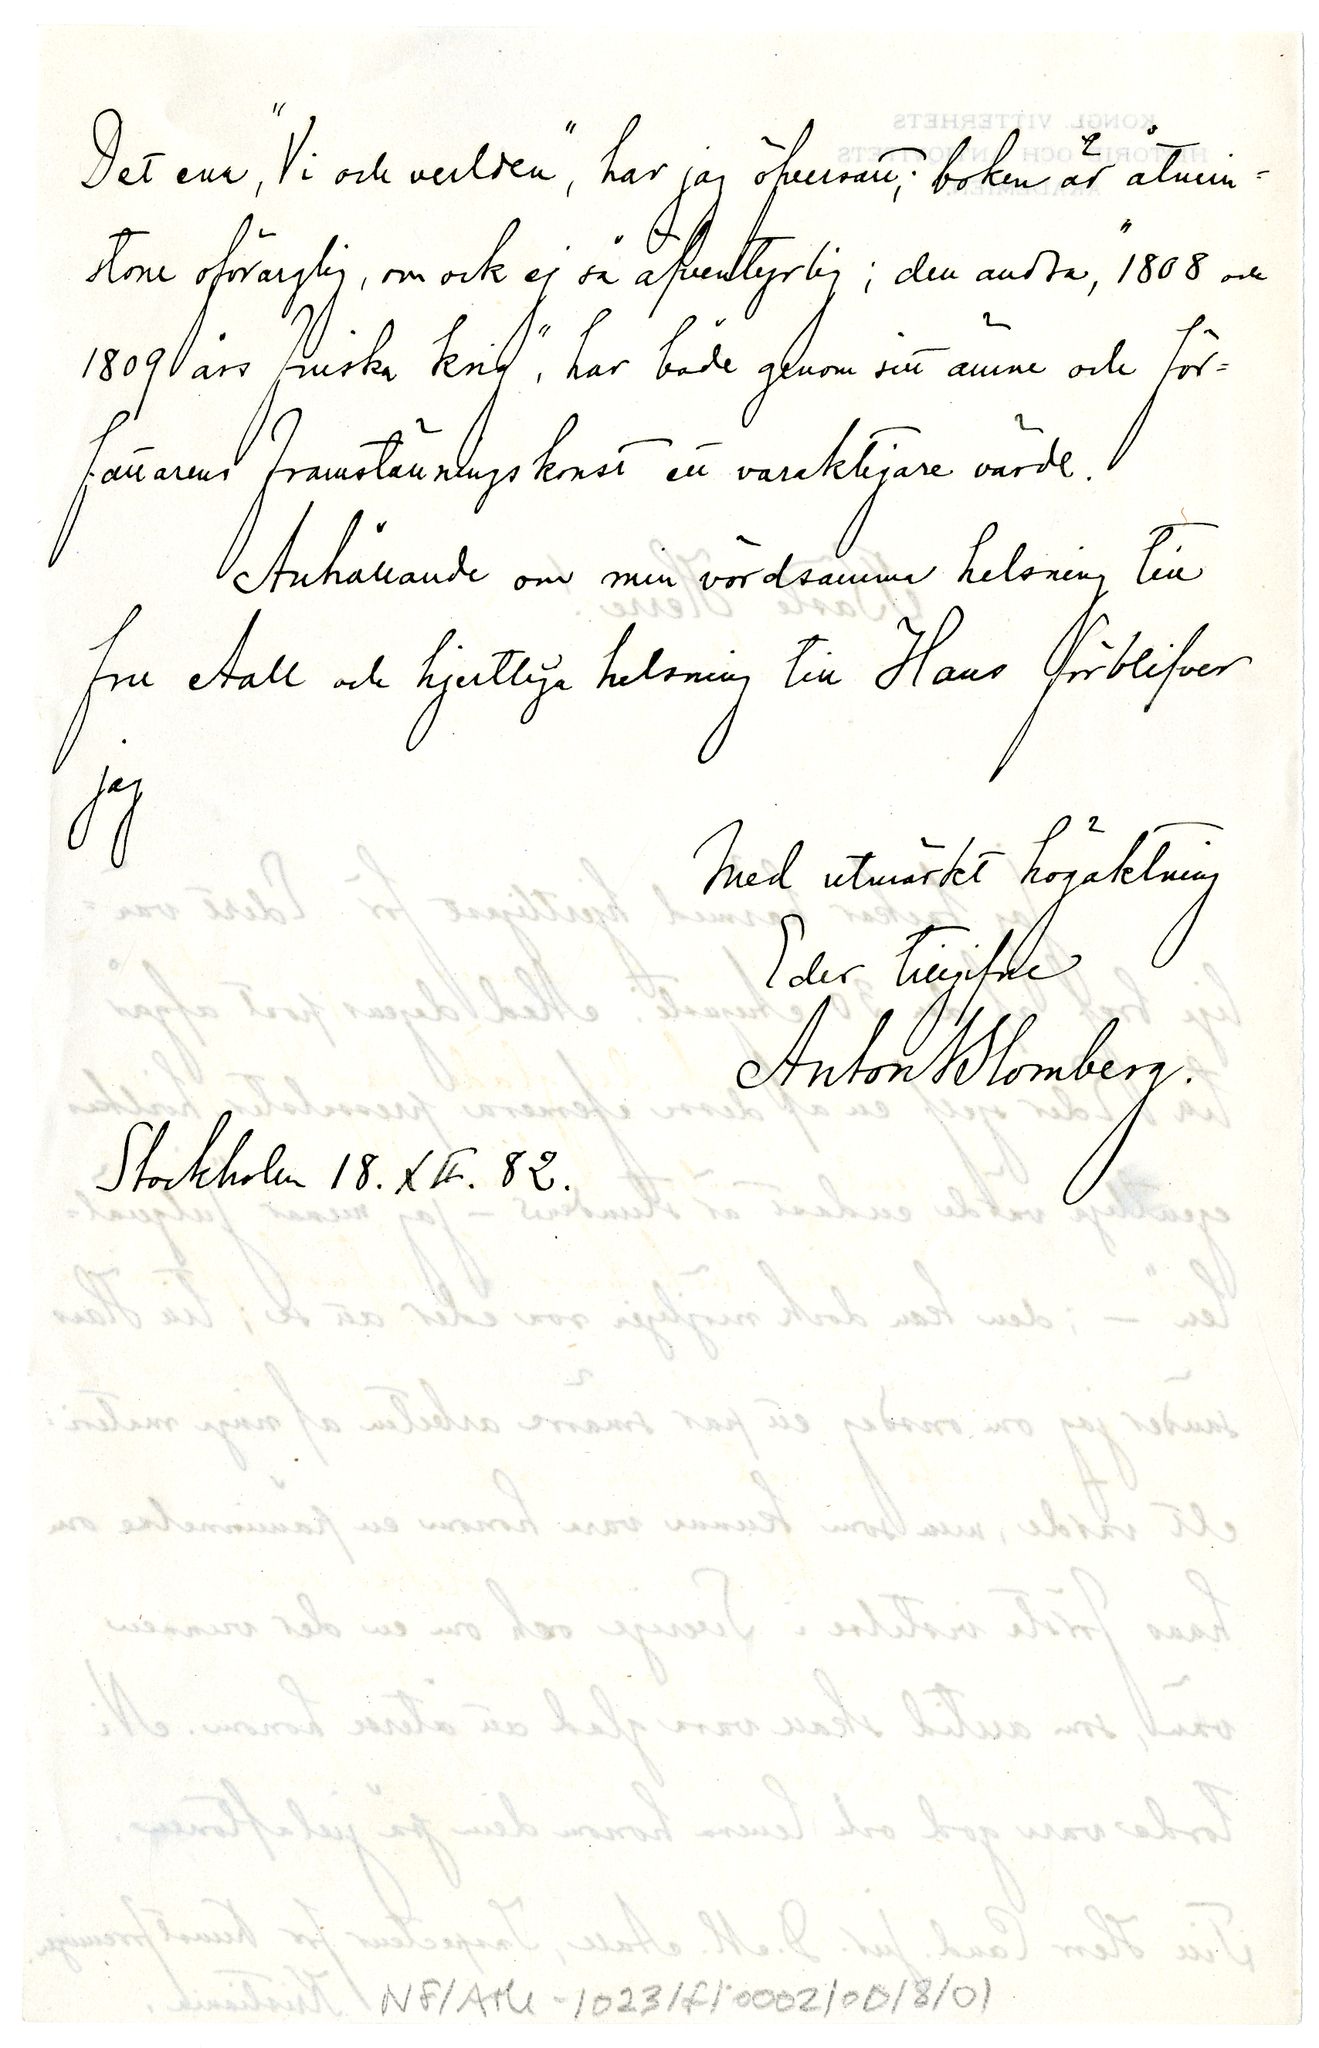 Det ena, "Vi och verlden", har jag öfversatt; boken är åtmin=
stone oförarglig, om ock ej så äfventyrlig; den andra, "1808 och
1809 års finska krig", har både genom sitt ämne och för=
fattarens framställningskonst ett varaktigare värde.
Anhållande om min vördsamma helsning till
fru Aall och hjertliga helsning till Hans förblifver
jag
Med utmärkt högaktning
Eder tillgifne
Anton Blomberg.
Stockholm 18. XII. 82.
NF/Ark-1023/F/0002/0D/8/01